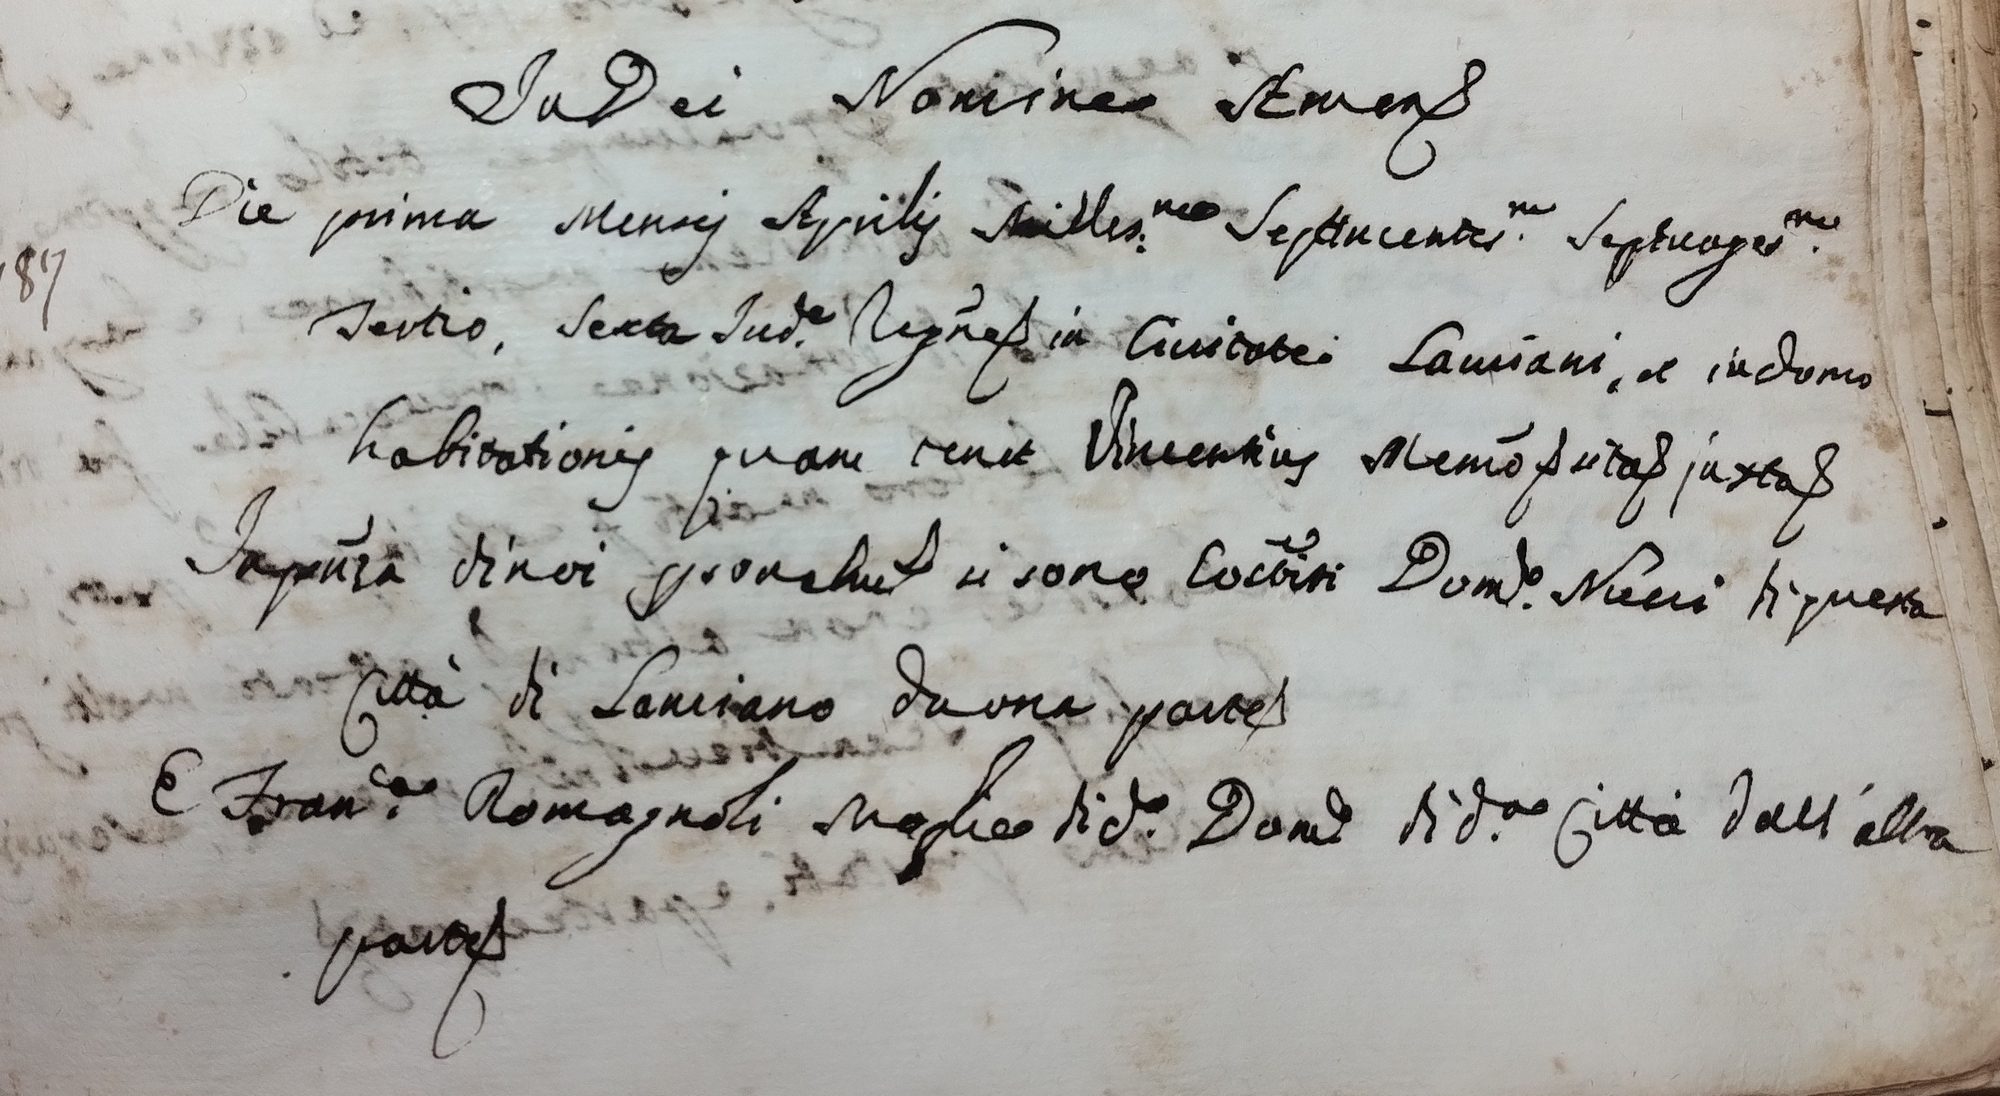 In Dei Nomine Amen
Die prima Mensis Aprilis Milles:mo Septincentes.mo Septuages.mo
187
Tertio, Sexta Ind.e Regn̄e in Civitate Lanciani, et in domo
habitationis quam tenet Vincentius sita juxta
In pn̄za di noi sono Dom.o Nucci di questa
Città di Lanciano da una parte
E Fran.ca Romagnoli Moglie di d.o Dom.o di d.a Città dall' altra
parte